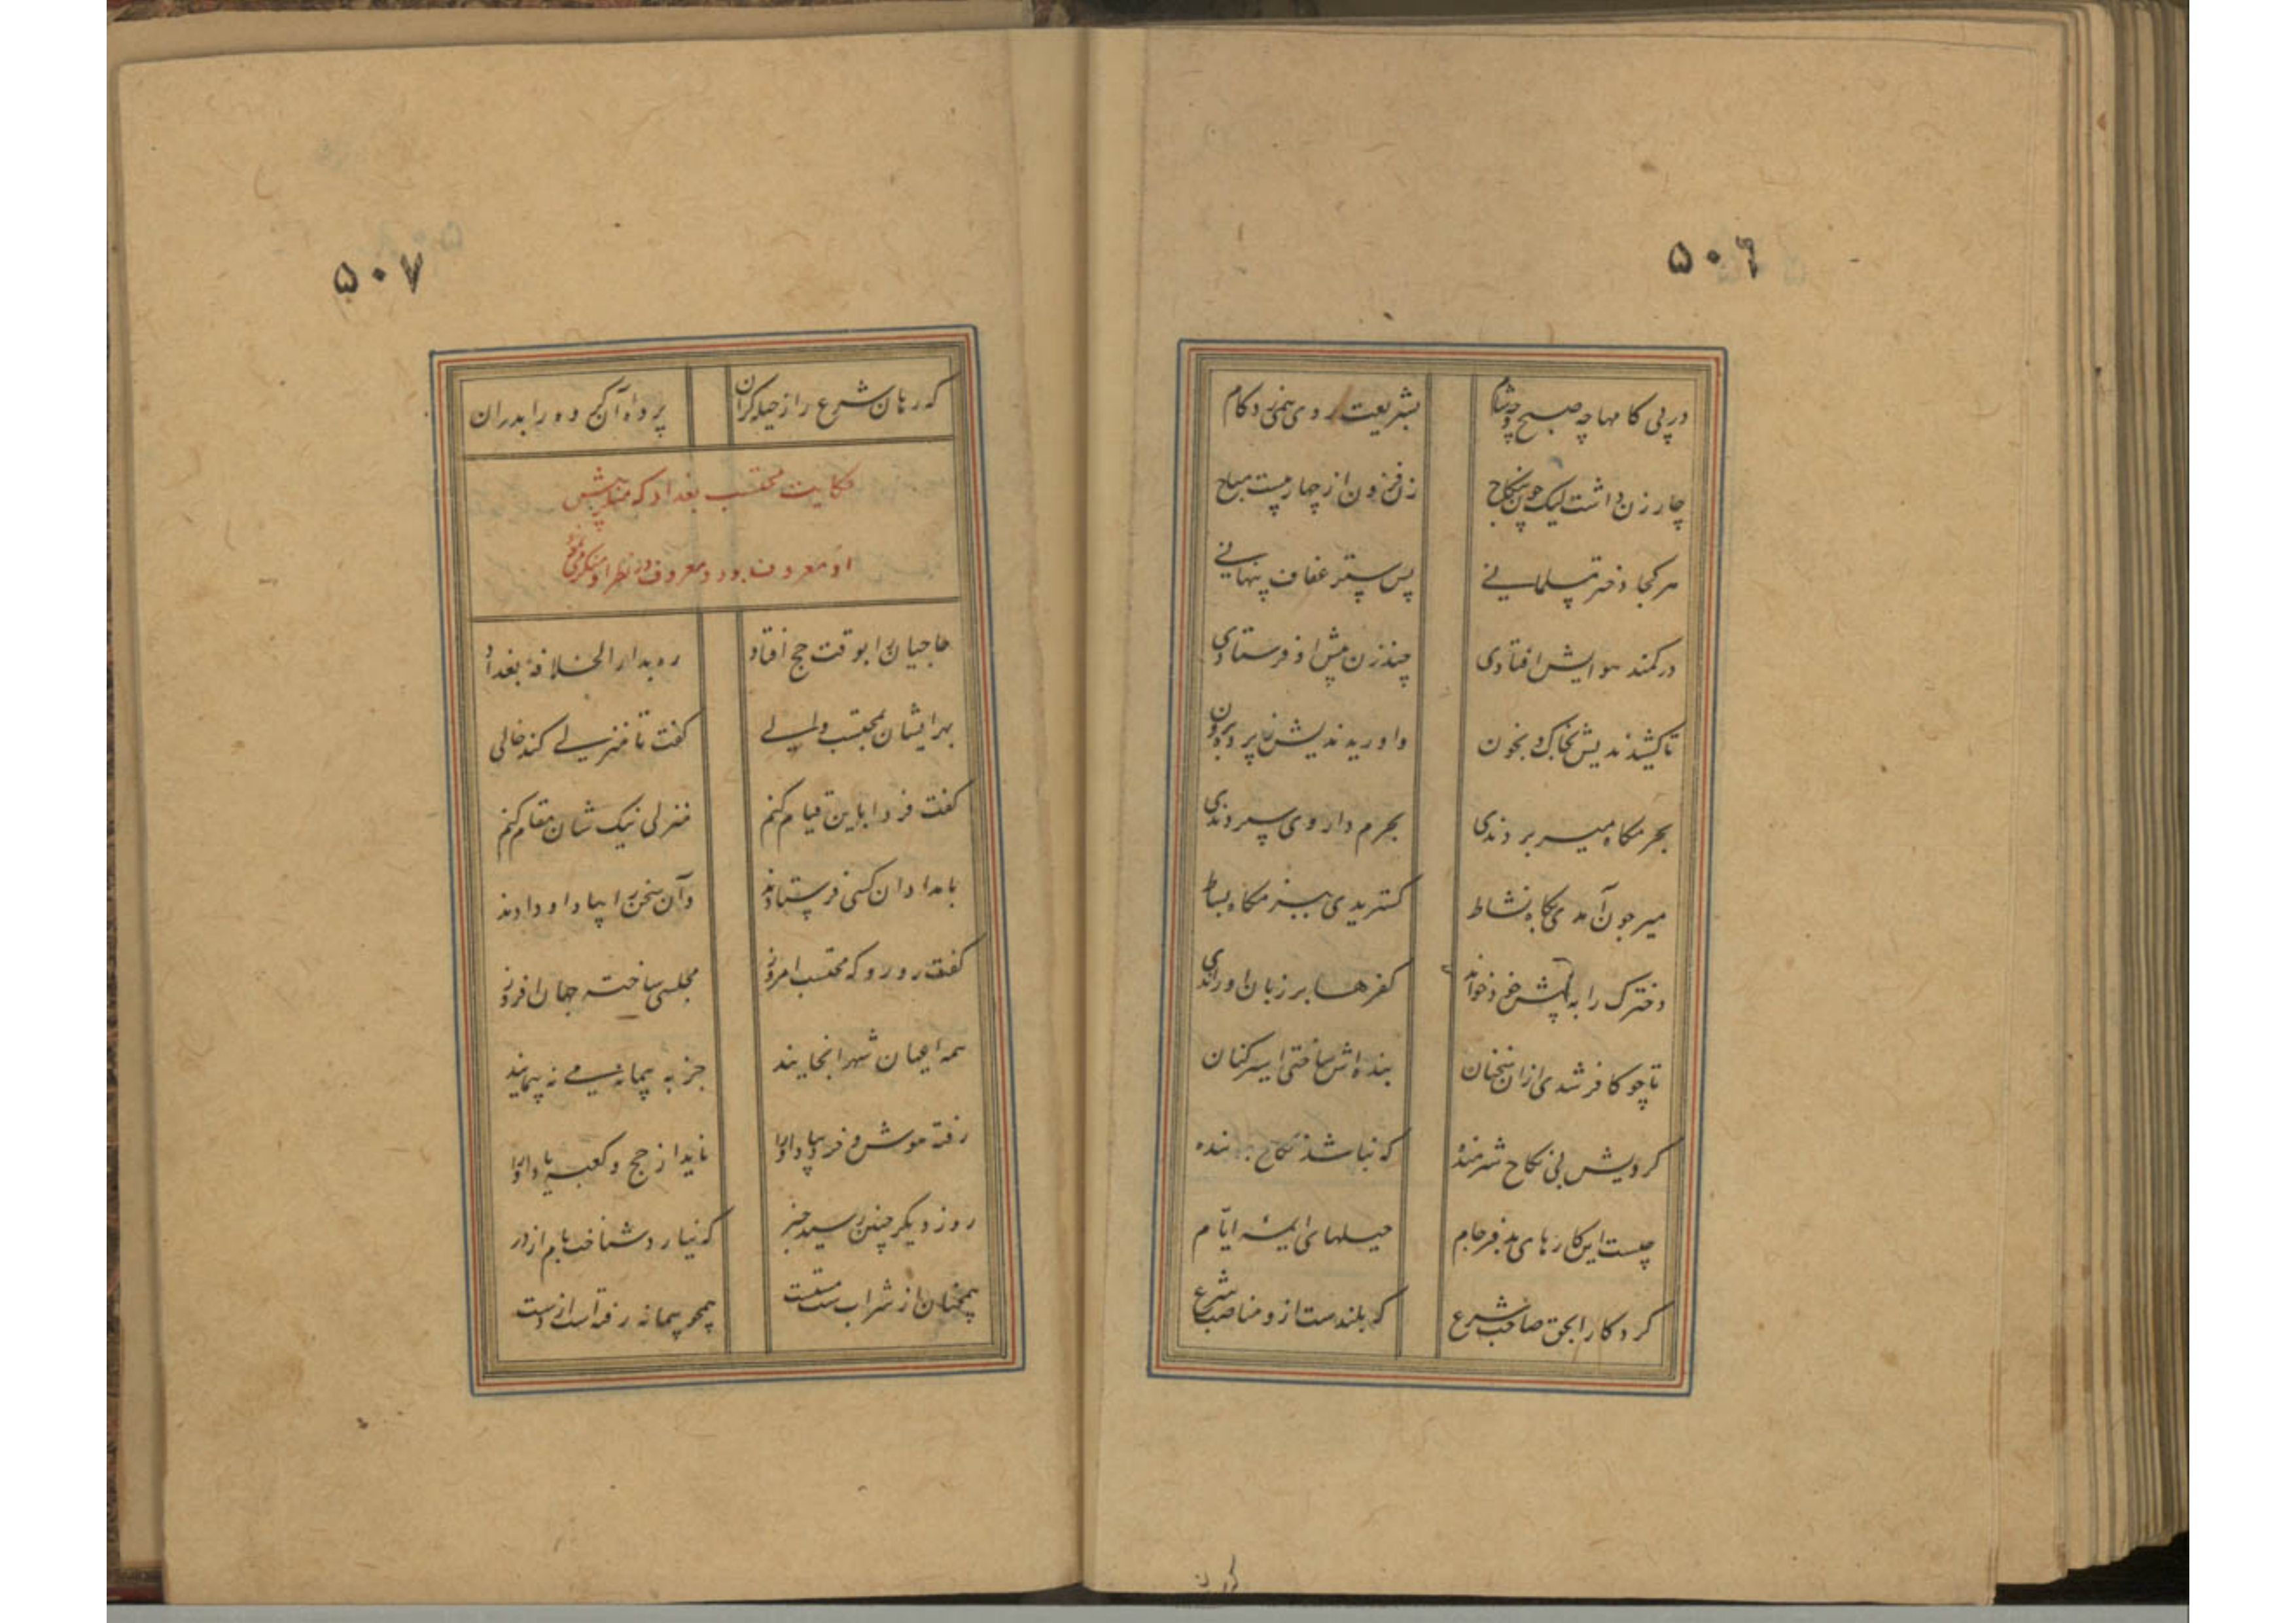 ۵۰۶
در پی کامها چه صبح و چه شام
بشریعت روی همی زد کام
چار زن داشت لیک چون بنکاح
زن فزون از چهار نیست مباح
هر کجا دختر مسلمانی
پس ستر عفاف پنهانی
در کمند هوایش افتادی
چند زن پیش او فرستادی
تا کشیدندیش بخاک و بخون
واوریدندیش ز پرده برون
بحرمکاه میر بردندی
بحرم دار وی سپردندی
میر چون آمدی بکاه نشاط
کستریدی ببزمکاه بساط
دخترک را به پیش خود خواندی
کفرها بر زبان او راندی
تا چو کافر شدی ازان سخنان
بنده اش ساختی اسیر کنان
کردیش بی نکاح شرمنده
که نباشد نکاح بر بنده
چیست این کارهای بدفرجام
حیلهای ائمه ایّام
کردکارا بحق صاحب شرع
که بلندست ازو مناصب شرع
۵۰۷
که رهان شرع را ز حیله کران
پرده آن کن و ده را بدران
حکایت محتسب بغداد که منکر پیش
او معروف بود و معروف در نظر او منکر می نمود
حاجیان را بوقت حج افتاد
ره بدار الخلافهٔ بغداد
بهر ایشان بمحتسب والی
کفت تا منزلی کند خالی
کفت فردا باین قیام کنم
منزلی نیک شان مقام کنم
بامدادان کسی فرستادند
وآن سخن را بیاد او دادند
کفت رو رو که محتسب امروز
مجلسی ساخته جهان افروز
همه اعیان شهر انجایند
جز به پیمانه می نه پیمایند
رفته هوش و خرد بباد او را
ناید از حج و کعبه یاد او را
روز دیکر چنین رسید خبر
که نیارد شناخت بام از در
همچنان از شراب مستست
همچو پیمانه رفته است از دست